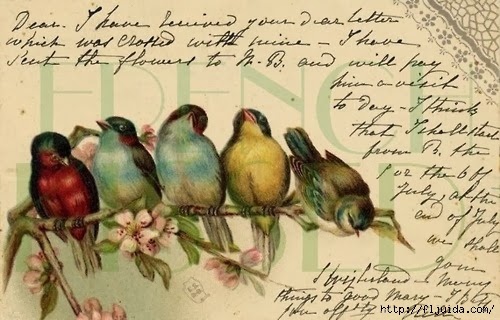 Dear. I have received your dear letter
which was crossed with mine - I have
sent the flowers to M. B. and will pay
him a visit
to day - I think
that I shall start
from B. the
5 or the 6 of
July, at the
end of July
we shall
Many
things to good Mary -
FRENCH
http://fljuida.com/